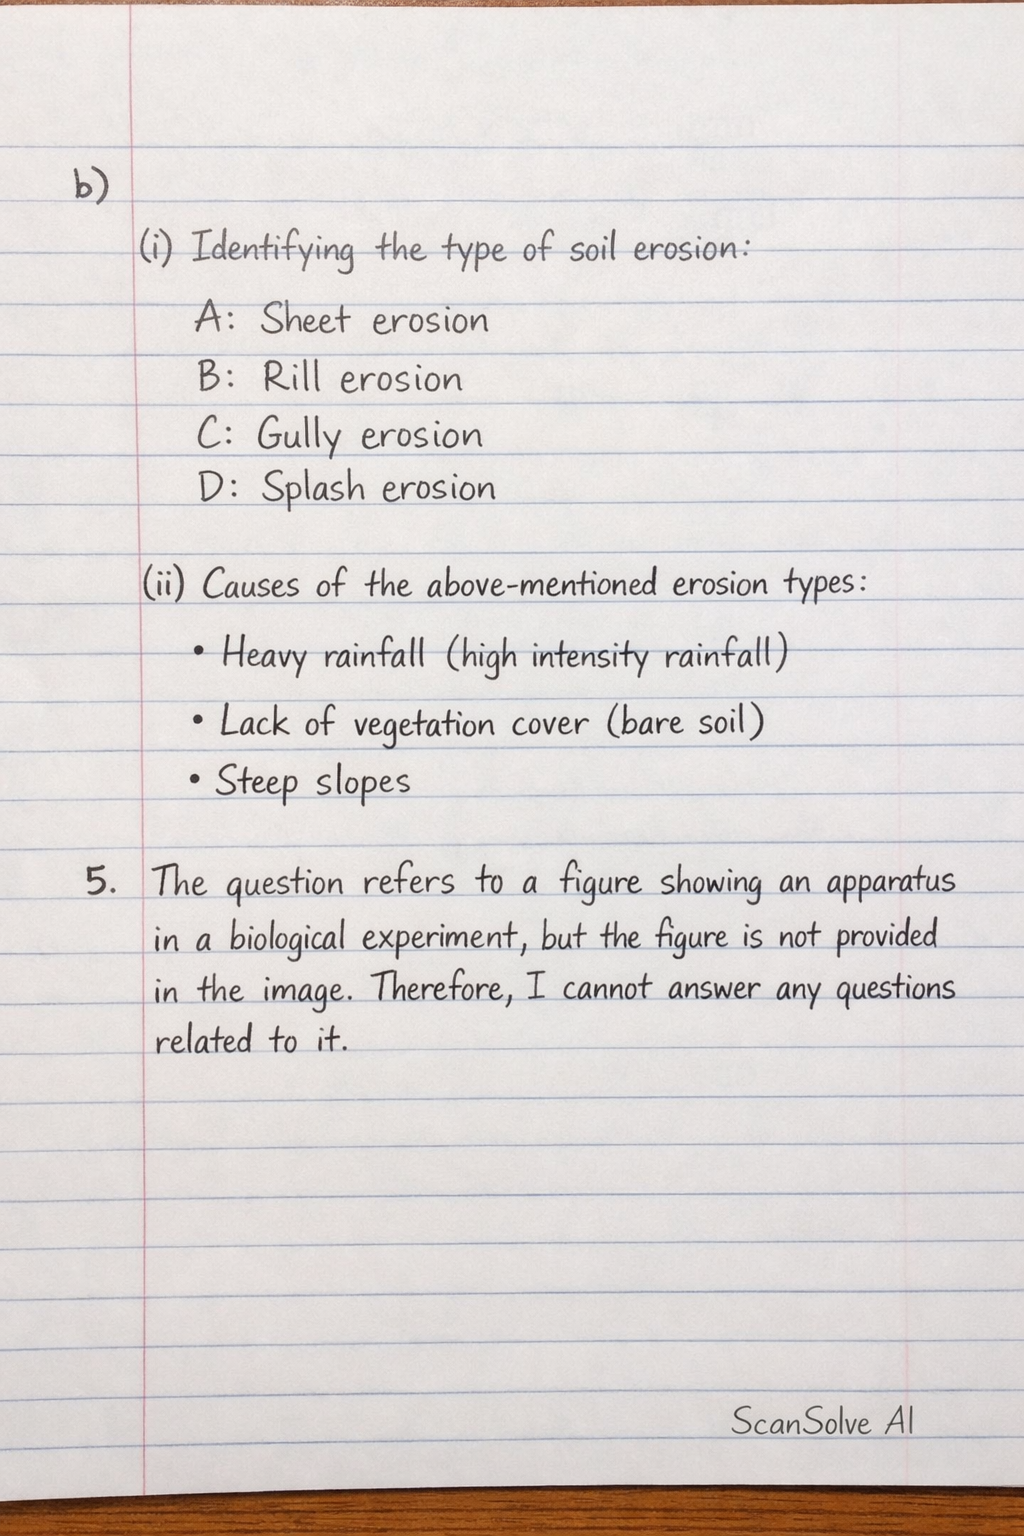 b)
(i) Identifying the type of soil erosion:
A: Sheet erosion
B: Rill erosion
C: Gully erosion
D: Splash erosion
(ii) Causes of the above-mentioned erosion types:
• Heavy rainfall (high intensity rainfall)
• Lack of vegetation cover (bare soil)
• Steep slopes
5. The question refers to a figure showing an apparatus
in a biological experiment, but the figure is not provided
in the image. Therefore, I cannot answer any questions
related to it.
ScanSolve AI